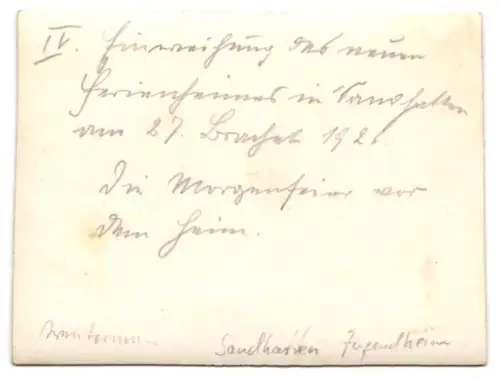 IV. Einweihung des neuen
Ferienheimes in Sandhatten
am 27. Brachet 192
Die Morgenfeier vor
dem Heim.
Sandhatten Jugendheim